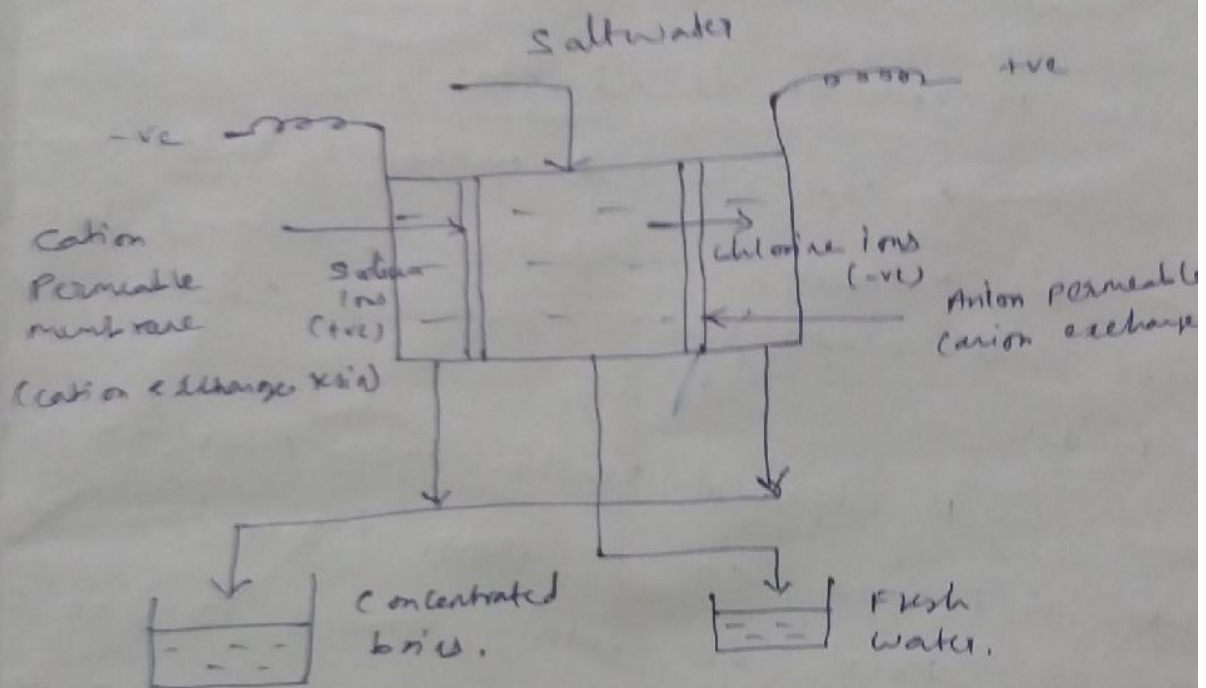 Saltwater
+ve
-ve
Cation
Permeable
membrane
(cation exchange resin)
ions
(+ve)
chlorine ions
(-ve)
Anion permeable
(anion exchange
Concentrated
Fresh
water.